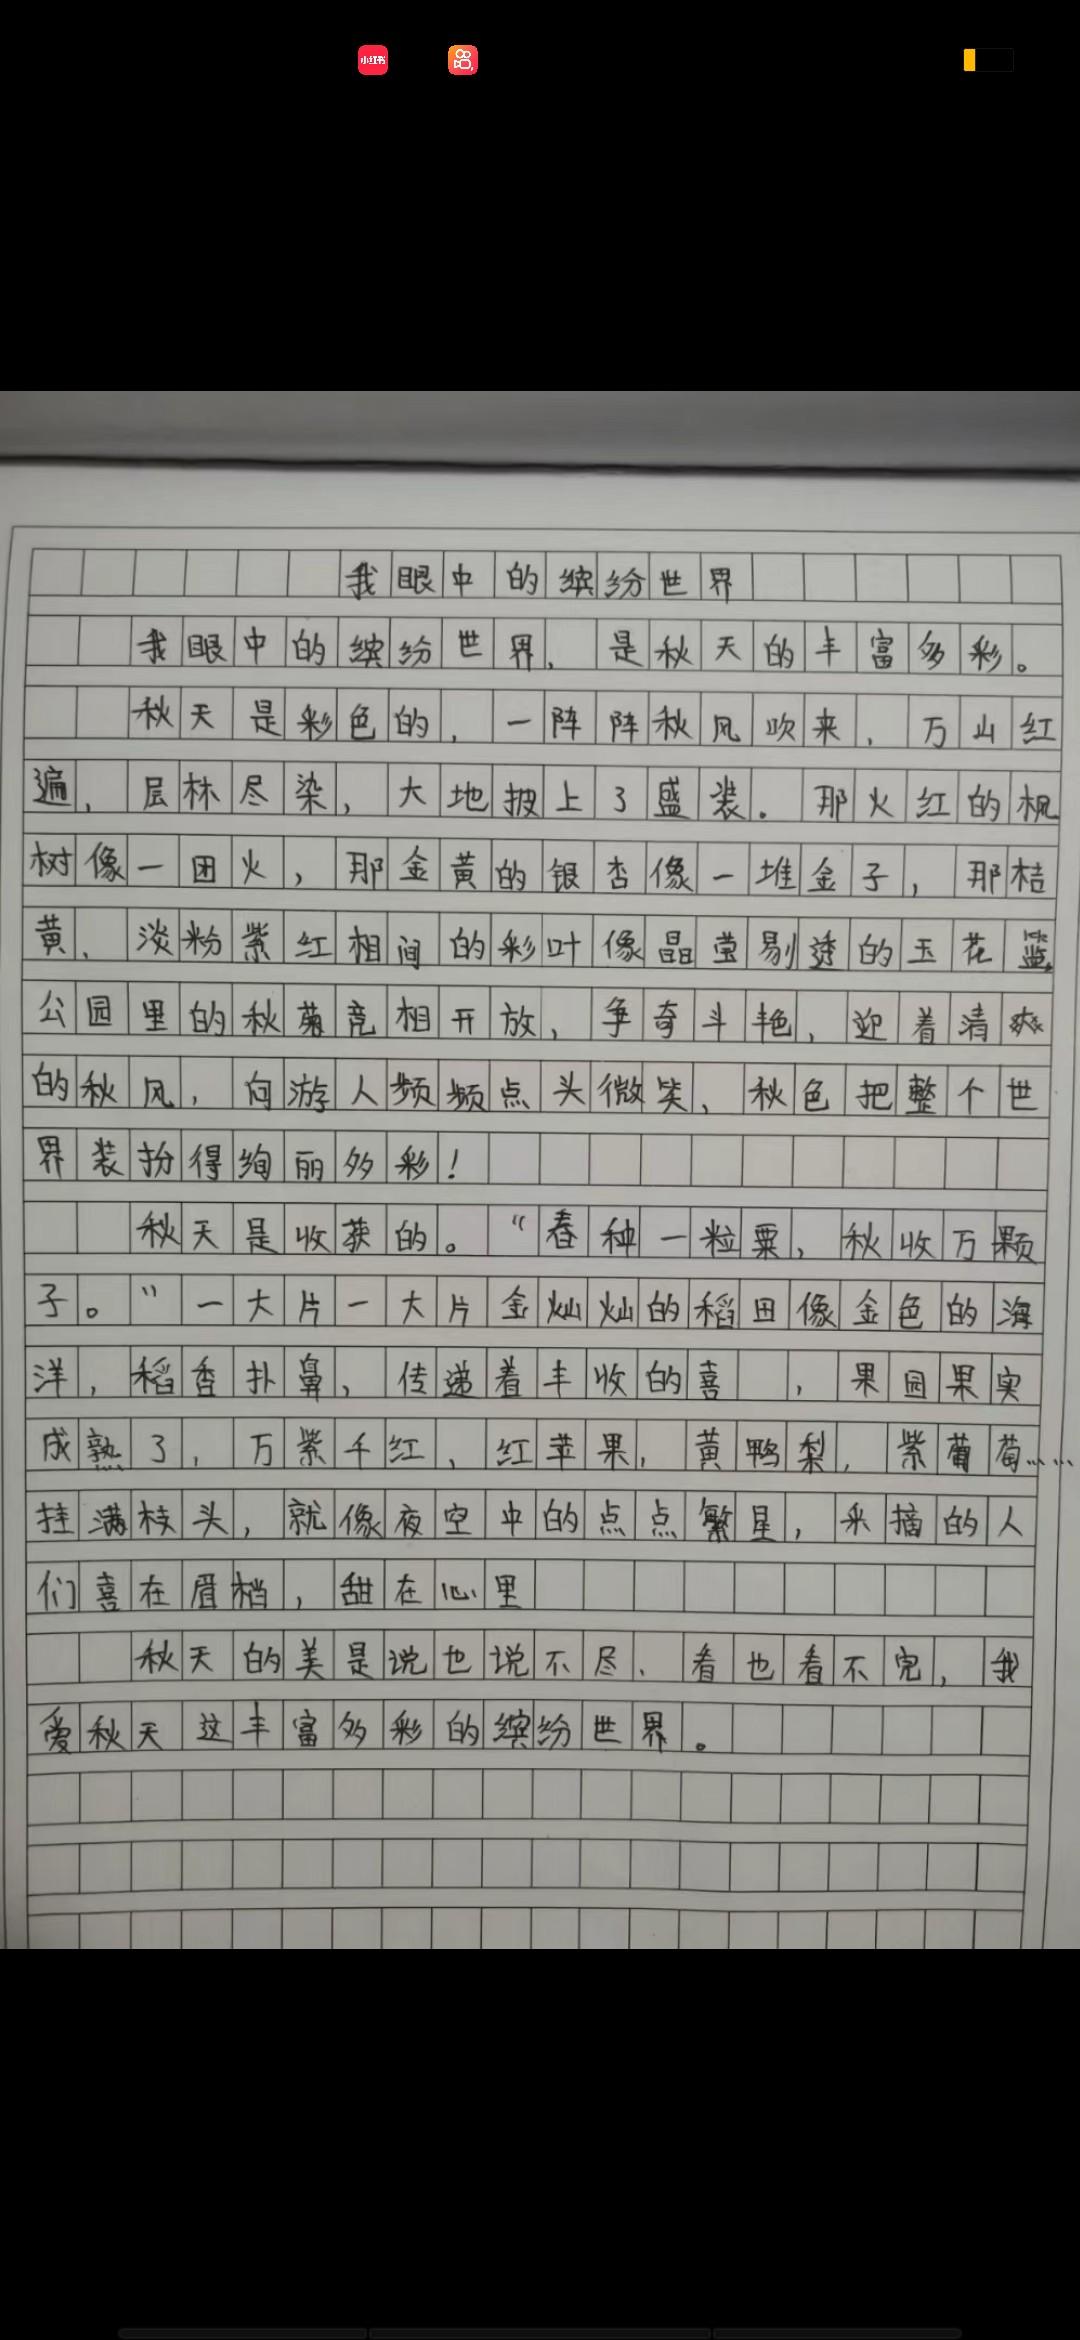 小红书
我眼中的缤纷世界
我眼中的缤纷世界，是秋天的丰富多彩。
秋天是彩色的，一阵阵秋风吹来，万山红
遍，层林尽染，大地披上了盛装。那火红的枫
树像一团火，那金黄的银杏像一堆金子，那桔
黄、淡粉紫红相间的彩叶像晶莹剔透的玉花篮。
公园里的秋菊竞相开放，争奇斗艳，迎着清爽
的秋风，向游人频频点头微笑、秋色把整个世
界装扮得绚丽多彩！
秋天是收获的。“春种一粒粟，秋收万颗
子。”一大片一大片金灿灿的稻田像金色的海
洋，稻香扑鼻，传递着丰收的喜 ，果园果实
成熟了，万紫千红，红苹果，黄鸭梨，紫葡萄……
挂满枝头，就像夜空中的点点繁星，采摘的人
们喜在眉档，甜在心里
秋天的美是说也说不尽、看也看不完，我
爱秋天这丰富多彩的缤纷世界。